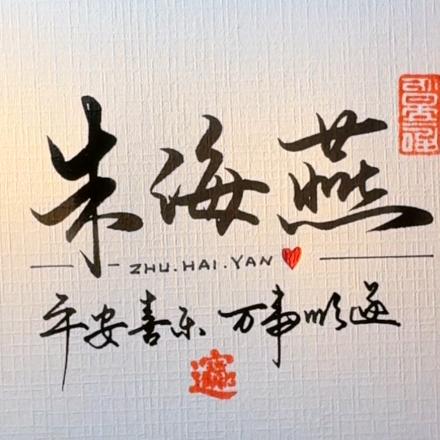 朱海燕
ZHU.HAI.YAN
平安喜乐 万事顺遂